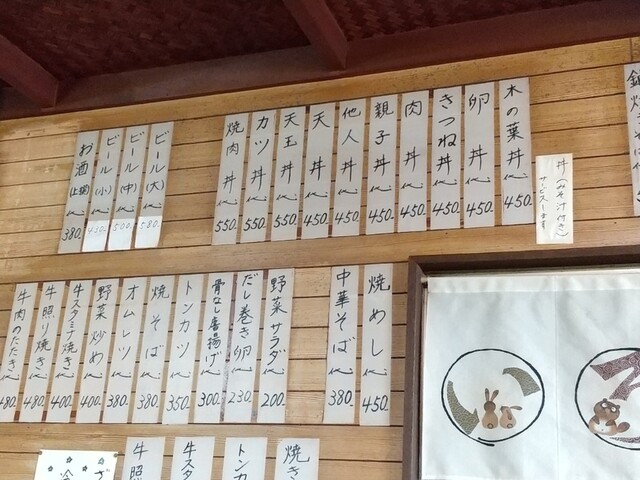 木の葉丼 代 450.
卵丼 代 450.
きつね丼 代 450.
肉丼 代 450.
親子丼 代 450.
他人丼 代 450.
天丼 代 450.
天玉丼 代 550.
カツ丼 代 550.
焼肉丼 代 550.
丼(みそ汁付き)
サービスします
ビール(大) 代 580.
ビール(中) 代 500.
ビール(小) 代 430.
お酒(上撰) 代 380.
焼めし 代 450.
中華そば 代 380.
野菜サラダ 代 200.
だし巻き卵 代 230.
骨なし唐揚げ 代 300.
トンカツ 代 350.
焼そば 代 380.
オムレツ 代 380.
野菜炒め 代 400.
牛スタミナ焼き 代 400.
牛照り焼き 代 480.
牛肉のたたき 代 480.
焼き
トンカ
牛スタ
牛照